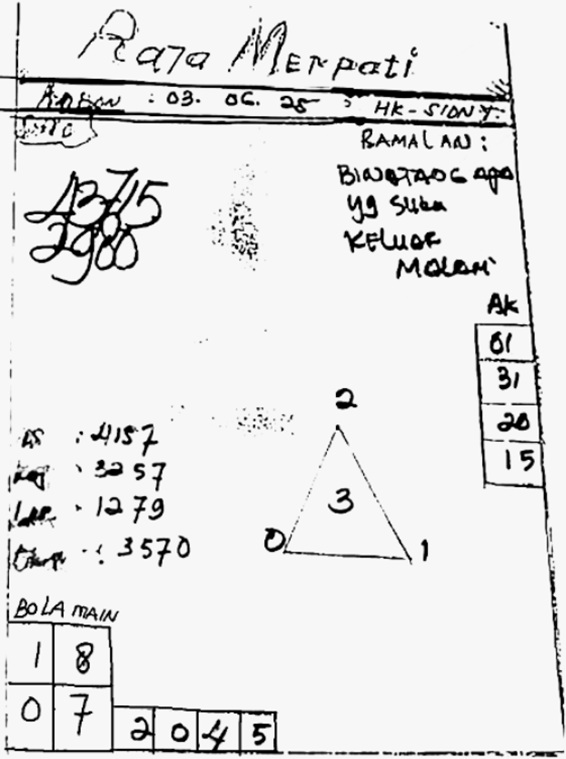 Raja Merpati
: 03. 06. 25 HK-SIDNY
RAMALAN:
BINATANG APA
yg SUKA
KELUAR
MALAM
43715
2980
AK
01
31
20
15
AS : 4157
: 3257
: 1279
: 3570
2
3
0 1
BOLA MAIN
1 8
0 7
2 0 4 5